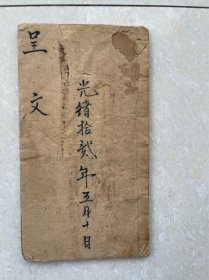 呈文
光绪拾贰年五月十日